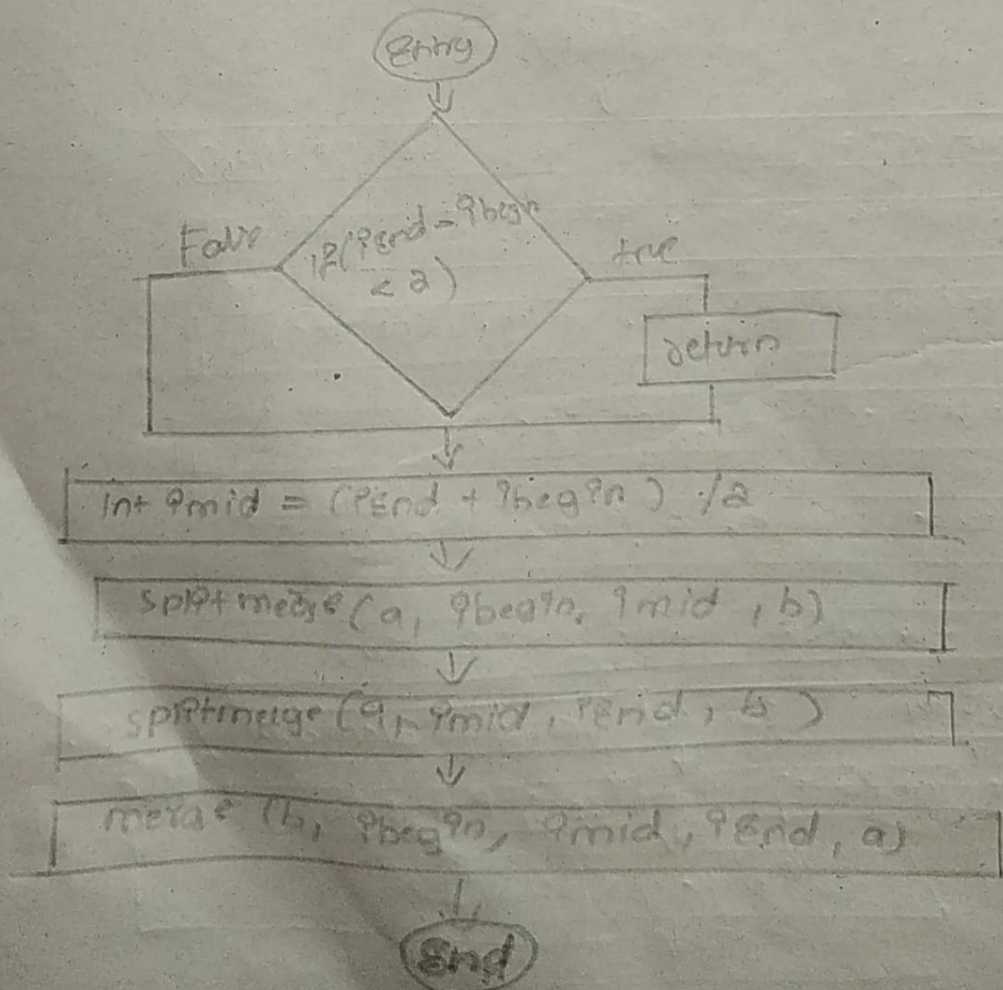 Entry
if(iEnd - ibegin
< 2)
False
true
return
int imid = (iEnd + ibegin) /2
splitmerge(a, ibegin, imid, b)
splitmerge(a, imid, iEnd, b)
merge (b, ibegin, imid, iEnd, a)
End